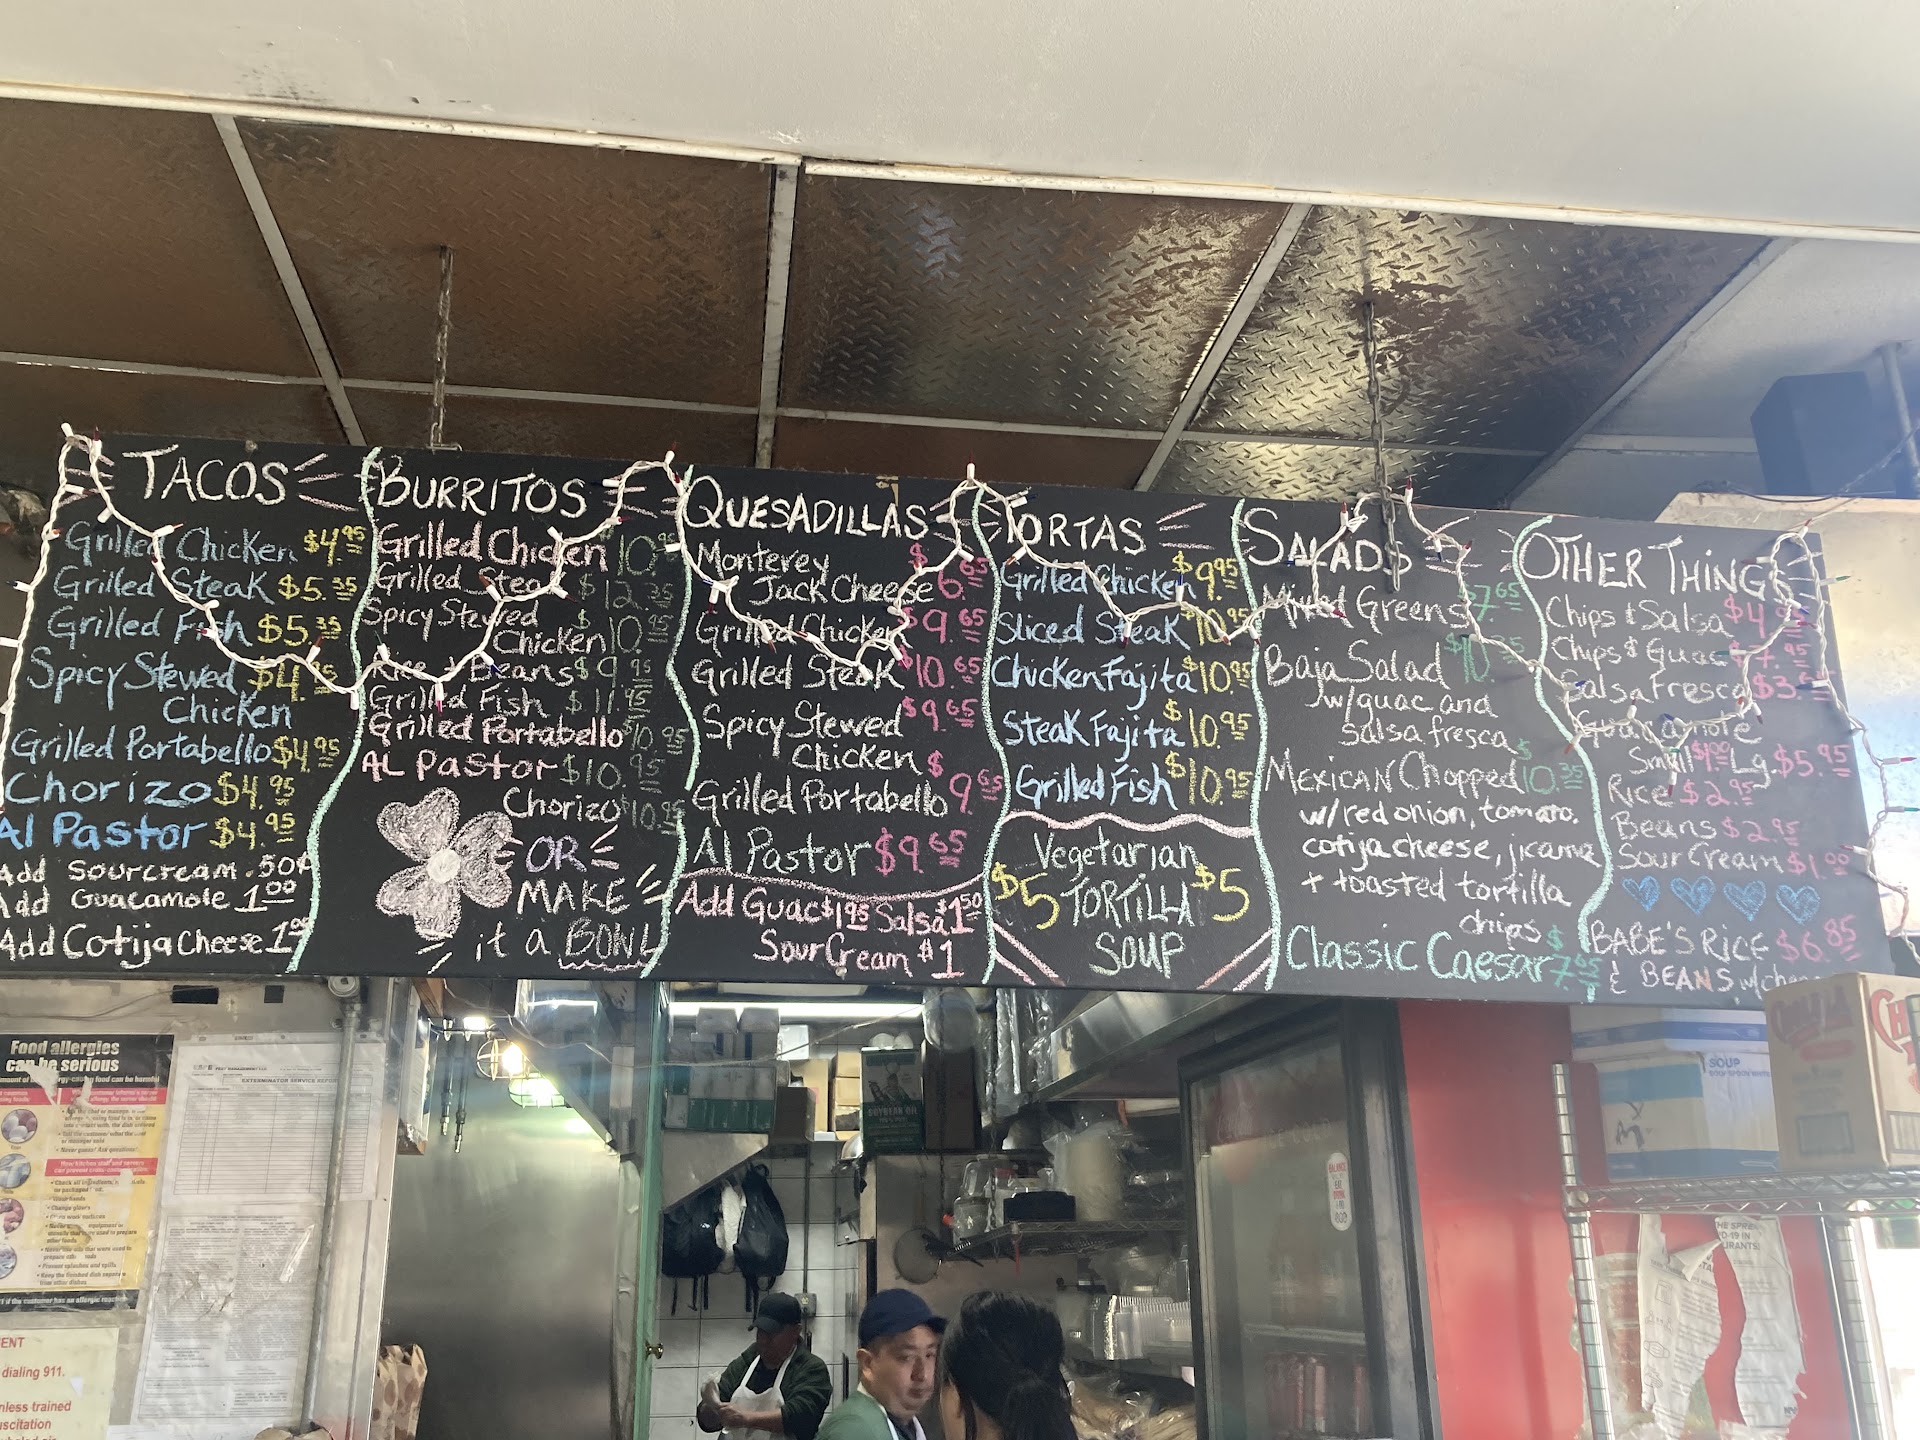 TACOS
Grilled Chicken $4.95
Grilled Steak $5.35
Grilled Fish $5.35
Spicy Stewed $4.95
Chicken
Grilled Portabello $4.95
Chorizo $4.95
Al Pastor $4.95
Add Sourcream .50¢
Add Guacamole 1.00
Add Cotija Cheese 1.00
BURRITOS
Grilled Chicken 10.95
Grilled Steak $12.35
Spicy Stewed
Chicken $10.95
Rice + Beans $9.95
Grilled Fish $11.95
Grilled Portabello $10.95
AL Pastor $10.95
Chorizo $10.95
OR
MAKE
it a BOWL
QUESADILLAS
Monterey
Jack Cheese $6.65
Grilled Chicken $9.65
Grilled Steak $10.65
Spicy Stewed $9.65
Chicken
Grilled Portabello $9.65
Al Pastor $9.65
Add Guac $1.95 Salsa $1.50
Sour Cream $1
TORTAS
Grilled Chicken $9.95
Sliced Steak $10.95
Chicken Fajita $10.95
Steak Fajita $10.95
Grilled Fish $10.95
Vegetarian
$5 TORTILLA $5
SOUP
SALADS
Mixed Greens $7.65
Baja Salad $10.35
w/guac and
salsa fresca
MEXICAN Chopped $10.35
w/red onion, tomato,
cotija cheese, jicama
+ toasted tortilla
chips
Classic Caesar $7.65
OTHER THINGS
Chips & Salsa $4
Chips & Guac $7.95
Salsa Fresca $3
Guacamole
Small $1.00 Lg. $5.95
Rice $2.95
Beans $2.95
Sour Cream $1.00
BABE'S RICE $6.85
& BEANS w/
Food allergies
can be serious
EXTERMINATOR SERVICE REPORT
SOYBEAN OIL
SOUP
dialing 911.